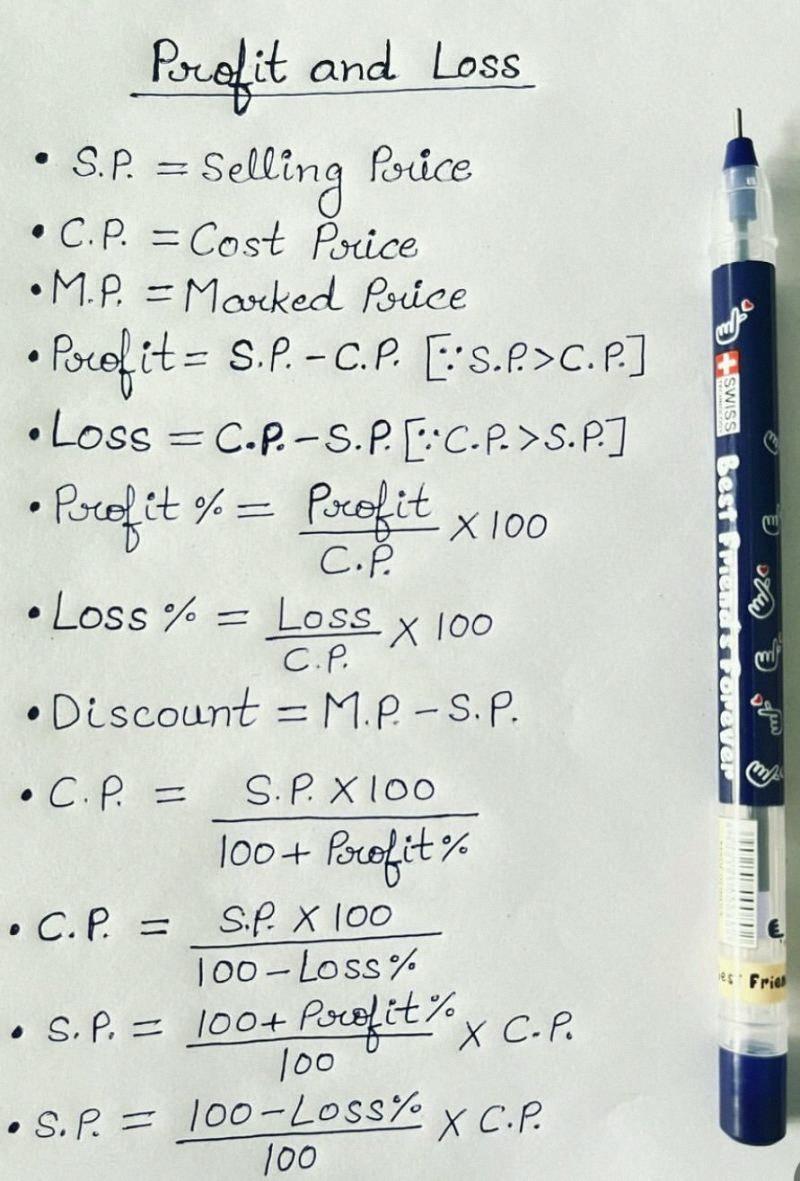 Profit and Loss
• S.P. = Selling Price
• C.P. = Cost Price
• M.P. = Marked Price
• Profit = S.P. - C.P. [∵ S.P. > C.P.]
• Loss = C.P. - S.P. [∵ C.P. > S.P.]
• Profit % = Profit / C.P. X 100
• Loss % = Loss / C.P. X 100
• Discount = M.P. - S.P.
• C.P. = S.P. X 100 / 100 + Profit %
• C.P. = S.P. X 100 / 100 - Loss %
• S.P. = 100 + Profit % / 100 X C.P.
• S.P. = 100 - Loss % / 100 X C.P.
SWISS
Best Friends Forever
Frien